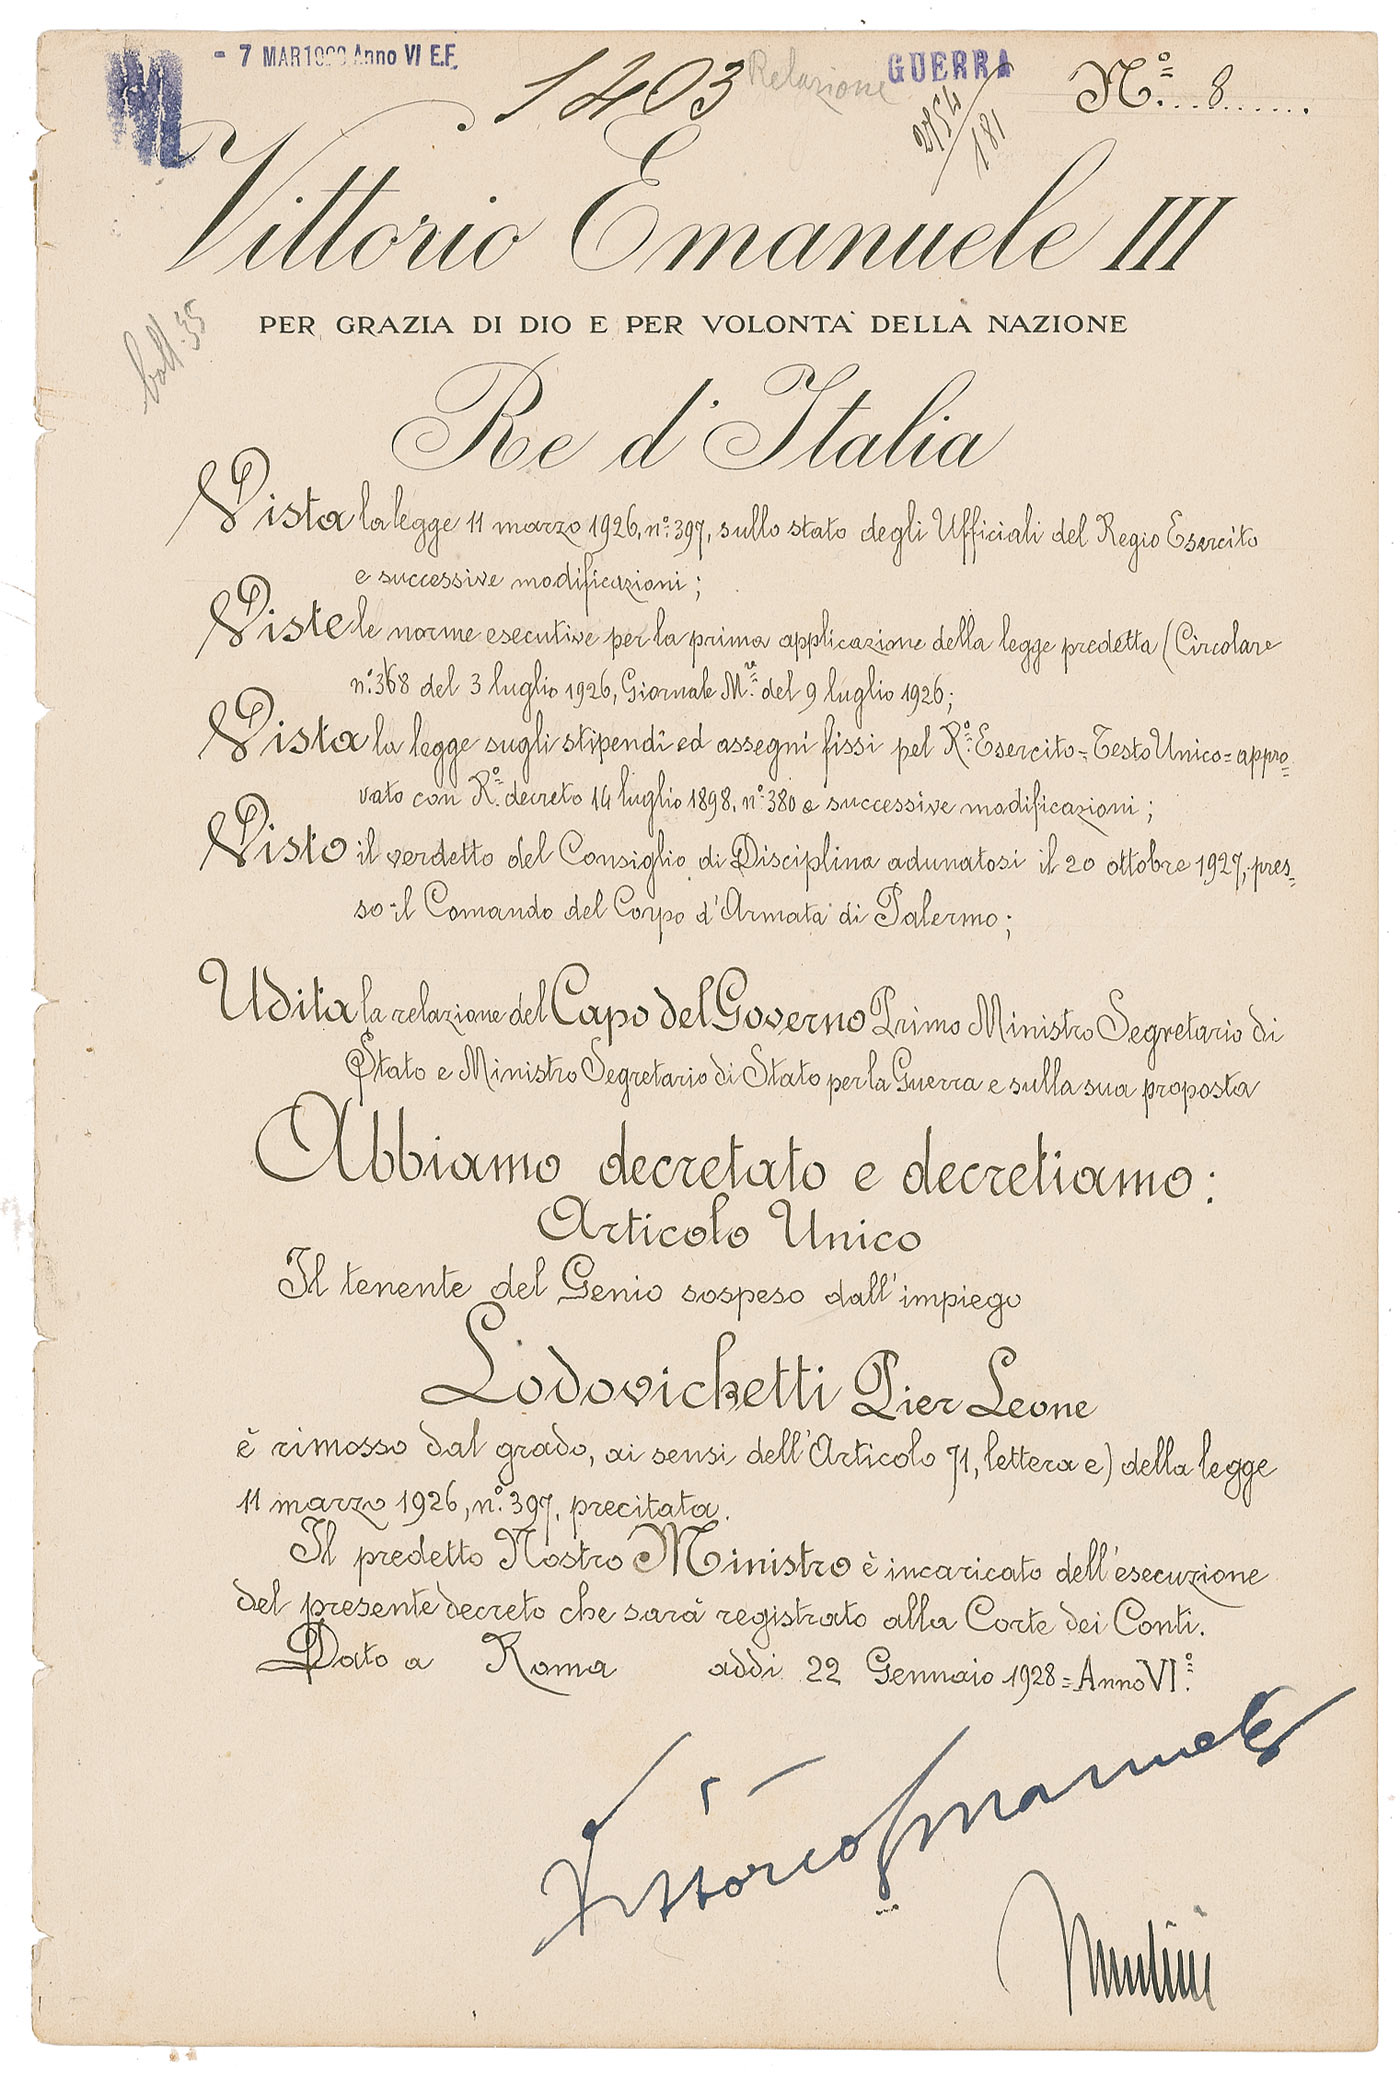 - 7 MAR 1928 Anno VI E.F.
1403
Relazione
GUERRA
N.º 8
Vittorio Emanuele III
boll. 35
PER GRAZIA DI DIO E PER VOLONTA' DELLA NAZIONE
Re d'Italia
Vista la legge 11 marzo 1926, nº. 397, sullo stato degli Ufficiali del Regio Esercito
e successive modificazioni;
Viste le norme esecutive per la prima applicazione della legge predetta (Circolare
nº. 368 del 3 luglio 1926, Giornale M.re del 9 luglio 1926;
Vista la legge sugli stipendî ed assegni fissi pel Rº. Esercito = Testo Unico = appro=
vato con Rº. decreto 14 luglio 1898, nº. 380 e successive modificazioni;
Visto il verdetto del Consiglio di Disciplina adunatosi il 20 ottobre 1927, pres=
so il Comando del Corpo d'Armata di Palermo;
Udita la relazione del Capo del Governo Primo Ministro Segretario di
Stato e Ministro Segretario di Stato per la Guerra e sulla sua proposta
Abbiamo decretato e decretiamo:
Articolo Unico
Il tenente del Genio sospeso dall'impiego
Lodovichetti Pier Leone
è rimosso dal grado, ai sensi dell'Articolo 71, lettera e) della legge
11 marzo 1926, nº. 397, precitata.
Il predetto Nostro Ministro è incaricato dell'esecuzione
del presente decreto che sarà registrato alla Corte dei Conti.
Dato a Roma addì 22 Gennaio 1928 = Anno VIº.
Vittorio Emanuele
Mussolini